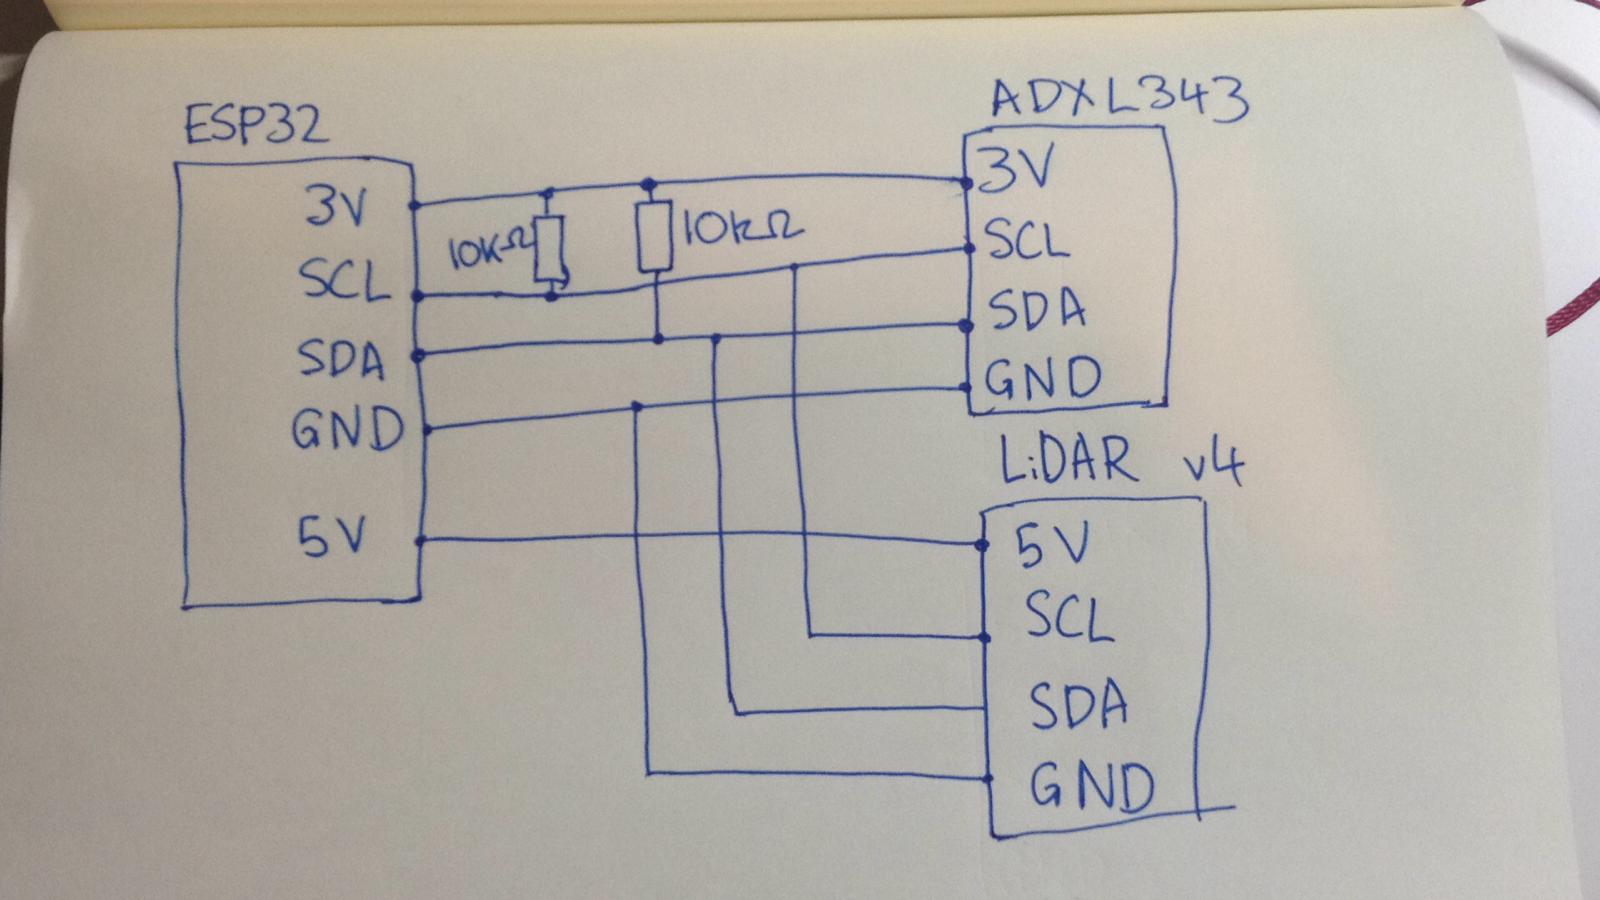 ESP32
3V
SCL
SDA
GND
5V
10KΩ
10kΩ
ADXL343
3V
SCL
SDA
GND
LiDAR v4
5V
SCL
SDA
GND